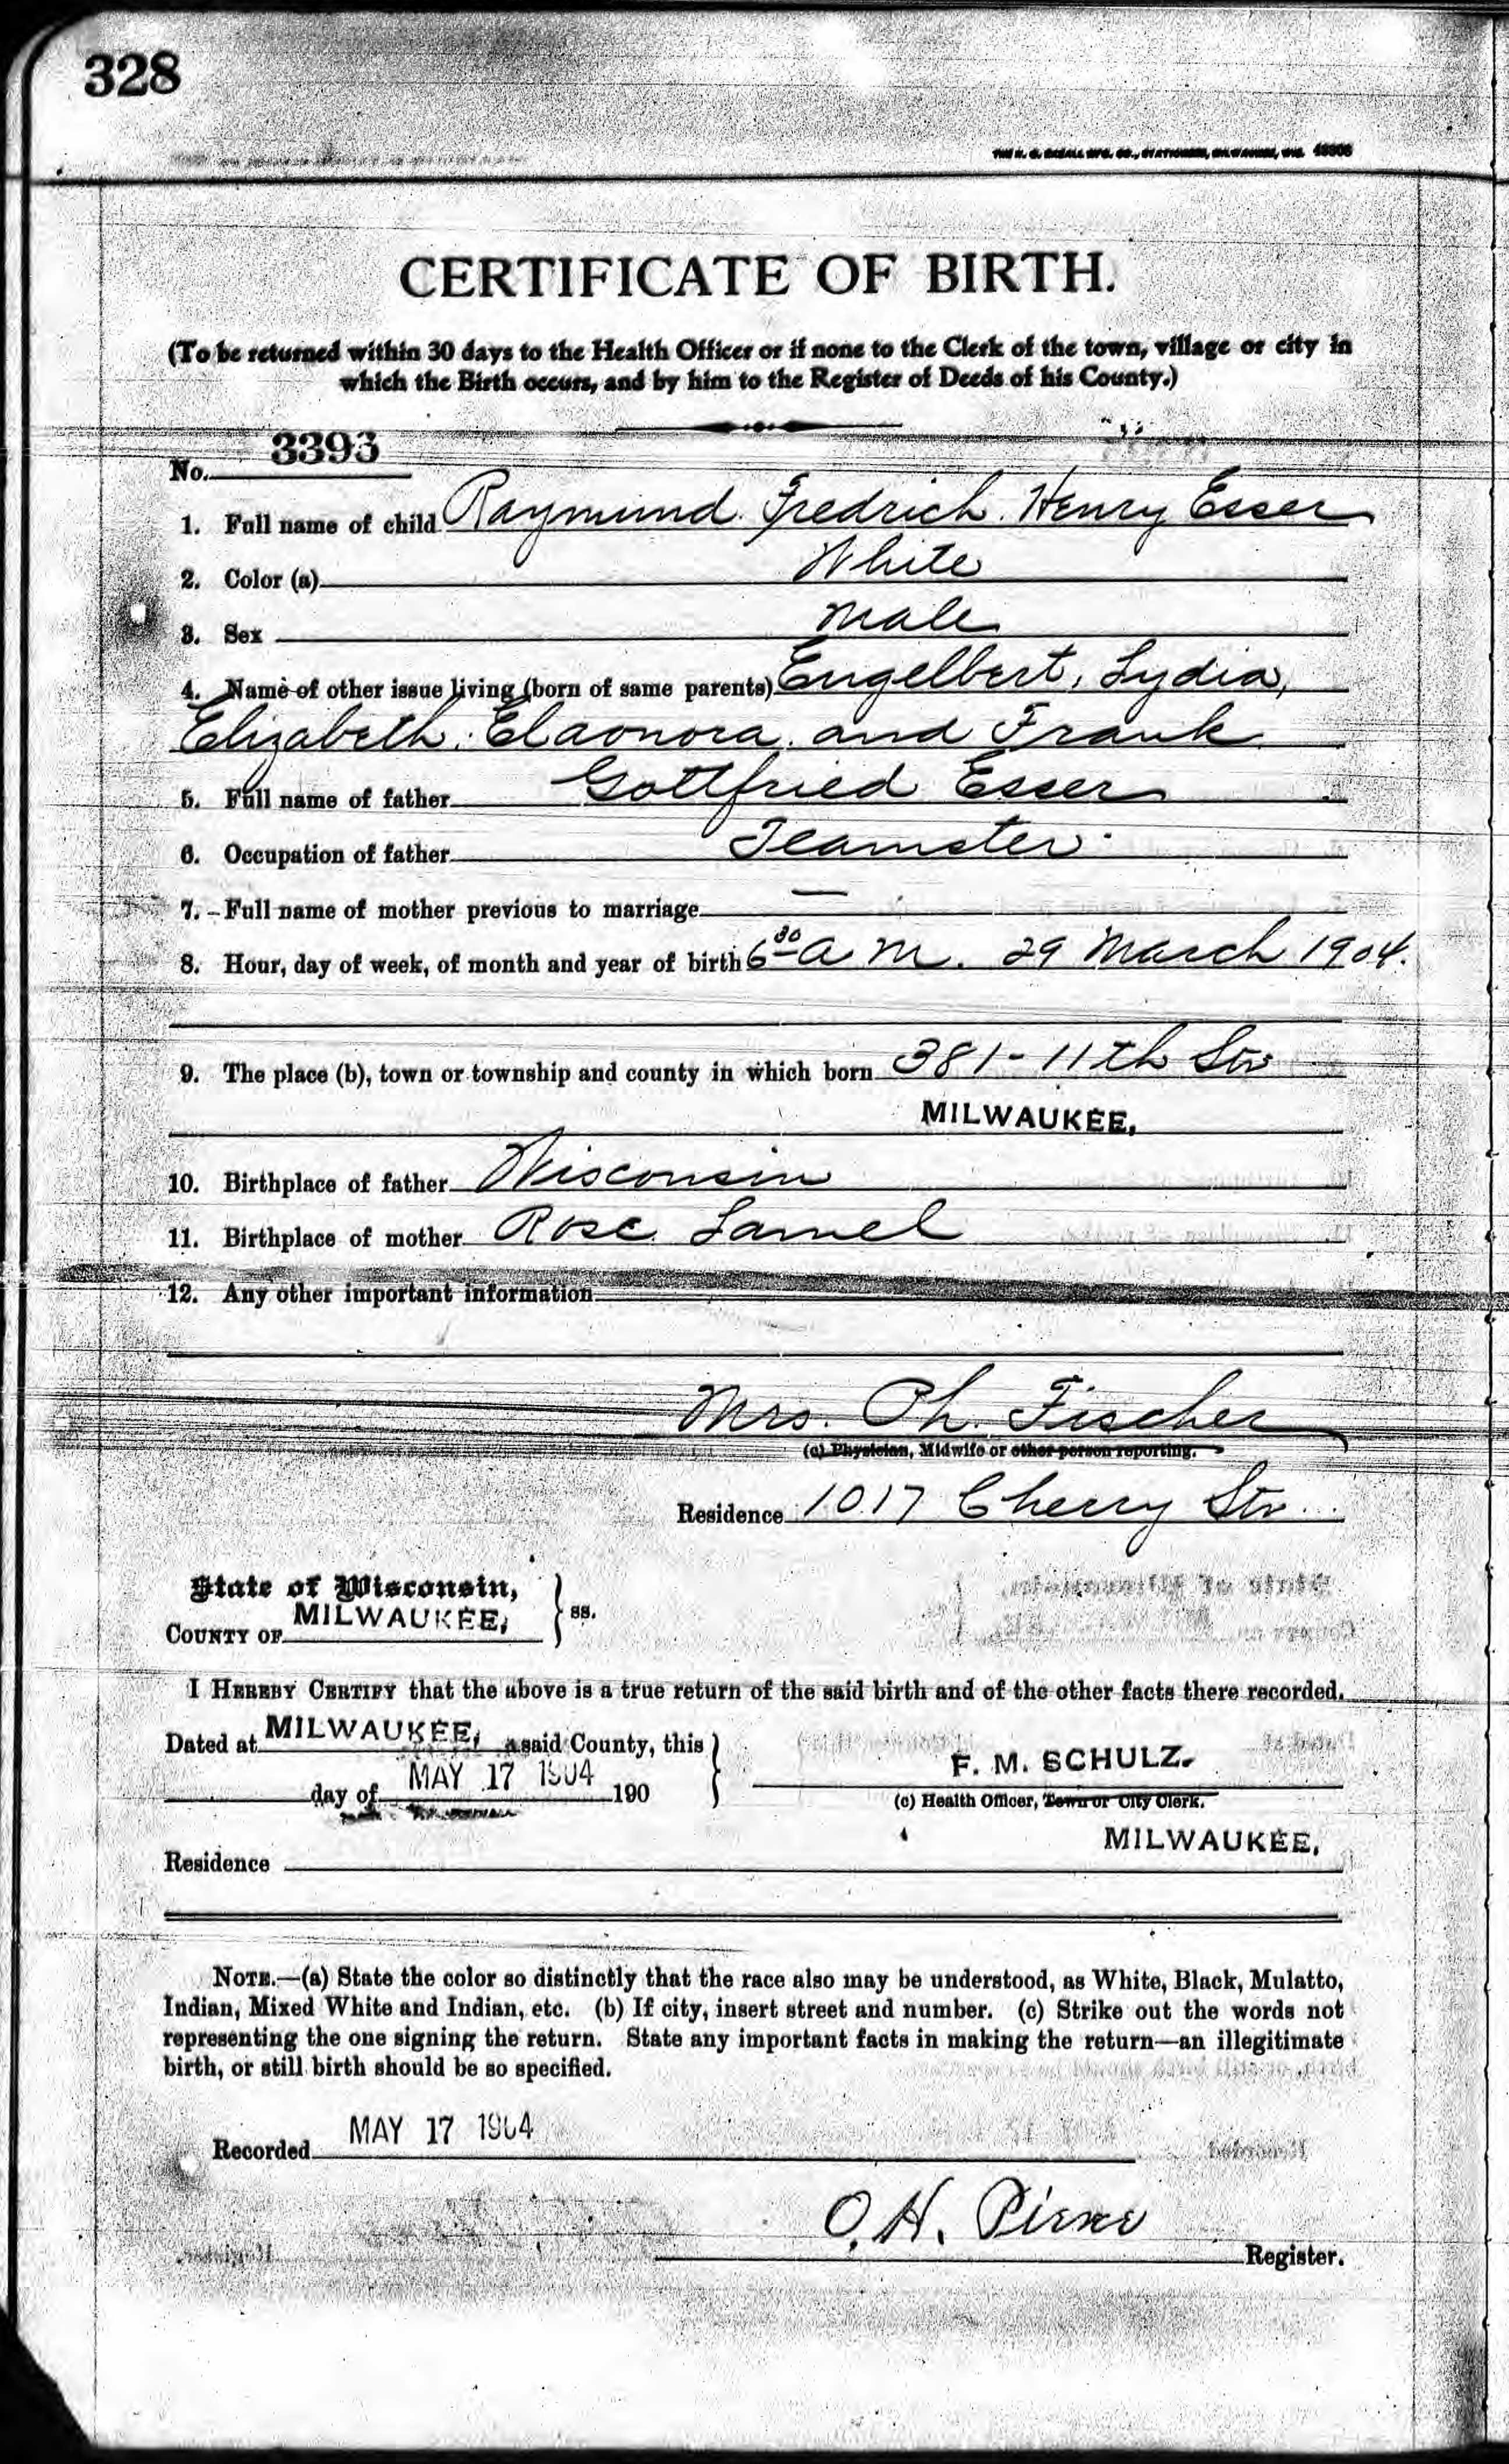 328
CERTIFICATE OF BIRTH.
(To be returned within 30 days to the Health Officer or if none to the Clerk of the town, village or city in
which the Birth occurs, and by him to the Register of Deeds of his County.)
No. 3393
1. Full name of child Raymund Fredrich Henry Esser
2. Color (a) White
3. Sex Male
4. Name of other issue living (born of same parents) Engelbert, Lydia,
Elizabeth, Elaonora, and Frank
5. Full name of father Gottfried Esser
6. Occupation of father Teamster
7. Full name of mother previous to marriage —
8. Hour, day of week, of month and year of birth 6 30 a M. 29 March 1904.
9. The place (b), town or township and county in which born 381-11th Str
MILWAUKEE,
10. Birthplace of father Wisconsin
11. Birthplace of mother Rose Lamel
12. Any other important information
Mrs. Ph. Fischer
(c) Physician, Midwife or other person reporting.
Residence 1017 Cherry Str
State of Wisconsin,
COUNTY OF MILWAUKEE, ss.
I HEREBY CERTIFY that the above is a true return of the said birth and of the other facts there recorded.
Dated at MILWAUKEE, said County, this
day of MAY 17 1904 190
F. M. SCHULZ.
(c) Health Officer, Town or City Clerk.
MILWAUKEE,
Residence
NOTE.—(a) State the color so distinctly that the race also may be understood, as White, Black, Mulatto,
Indian, Mixed White and Indian, etc. (b) If city, insert street and number. (c) Strike out the words not
representing the one signing the return. State any important facts in making the return—an illegitimate
birth, or still birth should be so specified.
Recorded MAY 17 1904
O. H. Pierce
Register.